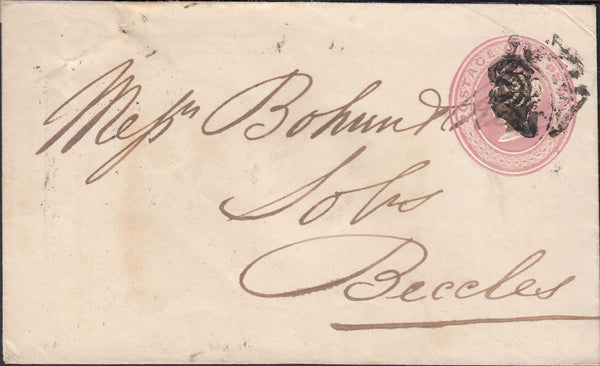 Messrs Bohun &
Sols
Beccles
POSTAGE